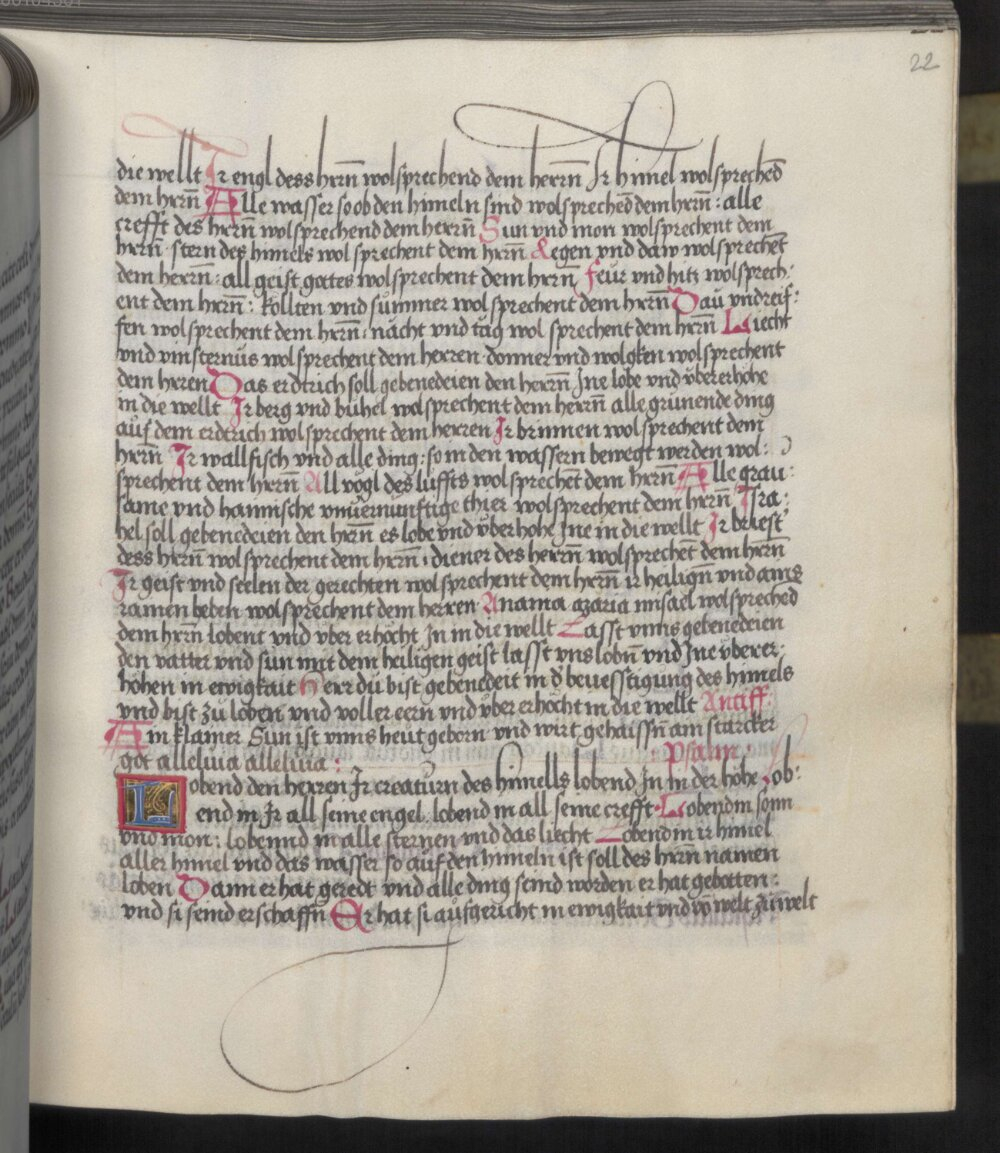 22
die wellt Ir engl dess hrrn̄ wolsprechend dem herrn̄ Ir himel wolspreched̄
dem hrrn̄ Alle wasser so ob den himeln sind wolspreched̄ dem hrrn̄ : alle
crefft des hrrn̄ wolsprechend dem herrn̄ Sun vnd mon wolsprechent dem
hrrn̄ stern des himels wol sprechent dem hrrn̄ Regen vnd daw wolsprechet̄
dem herrn̄ : all geist gotes wolsprechent dem hrrn̄ feur vnd hitz wolsprech:
ent dem hrrn̄ : kollten vnd sum̄mer wolsprechent dem hrrn̄ Dau vnd reif:
fen wolsprechent dem hrrn̄ : nacht vnd tag wol sprechent dem hrrn̄ Liecht
vnd vinsternus wolsprechent dem herren donner vnd wolgken wolsprechent
dem hrren Das erdtrich soll gebenedeien den herrn̄ Ine lobe vnd vbererhohe
in die wellt Ir berg vnd bühel wolsprechent dem herrn̄ alle grunende ding
auf dem erdtrich wolsprechent dem herren Ir brunnen wolsprechent dem
hrrn̄ Ir wallfisch vnd alle ding : so in den wassern bewegt werden wol:
sprechent dem hrrn̄ All vögl des luffts wolsprechet̄ dem hrrn̄ Alle grau:
same vnd hannische vnuernunftige thier wolsprechent dem hrrn̄ Isra:
hel soll gebenedeien den hrrn̄ es lobe vnd vberhohe Ine in die wellt Ir briest:
dess hrrn̄ wolsprechent dem hrrn̄ : diener des herrn̄ wolsprechet̄ dem hrrn̄
Ir geist vnd seelen der gerechten wolsprechent dem hrrn̄ ir heilign̄ vnd ains
ramen beben wolsprechent dem herren Anania azaria misael wolspreched̄
dem hrrn̄ lobent vnd vber erhöcht In in die wellt Lasst vnns gebenedeien
den vatter vnd sun mit dem heiligen geist lasst vns lobn̄ vnd Ine vberer:
hohen in ewigkait Herr du bist gebenedeit in d' beuesstigung des himels
vnd bist zu loben vnd voller eern vnd vber erhöcht in die wellt Antiff:
Ain klainer Sun ist vnns heut geborn vnd wirt gehaissn̄ ain starcker
got alleluia alleluia : Psalm :
Lobend den herren Ir creaturn des himells lobend In in der höhe Lob:
end in Ir all seine engel lobend in all seine crefft Lobend in sonn
vnd mon : lobennd in alle sternen vnd das liecht Lobend in ir himel
aller himel vnd das wasser so auf den himeln ist soll des hrrn̄ namen
loben Dann er hat geredt vnd alle ding seind worden er hat gebotten :
vnd si seind erschaffn̄ Er hat si aufgericht in ewigkait vnd vō welt zu welt